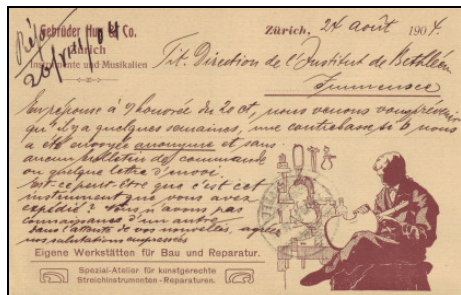 Gebrüder Hug & Co.
Zürich
Instrumente und Musikalien
Rép.
26/VIII/04
Zürich, 24 août 1904.
Tit. Direction de l'Institut de Bethléem
Immensee
En réponse à l'honorée du 20 ct, nous venons vous prévenir
qu'il y a quelques semaines, une contrebasse si b nous
a été envoyée anonyme et sans
aucun bulletin de commande
ou quelque lettre d'envoi.
Est-ce peut être que c'est cet
instrument que vous avez
expédié? Nous n'avons pas
connaissance d'un autre
Dans l'attente de vos nouvelles, agréez
nos salutations empressées
Eigene Werkstätten für Bau und Reparatur.
Spezial-Atelier für kunstgerechte
Streichinstrumenten-Reparaturen.